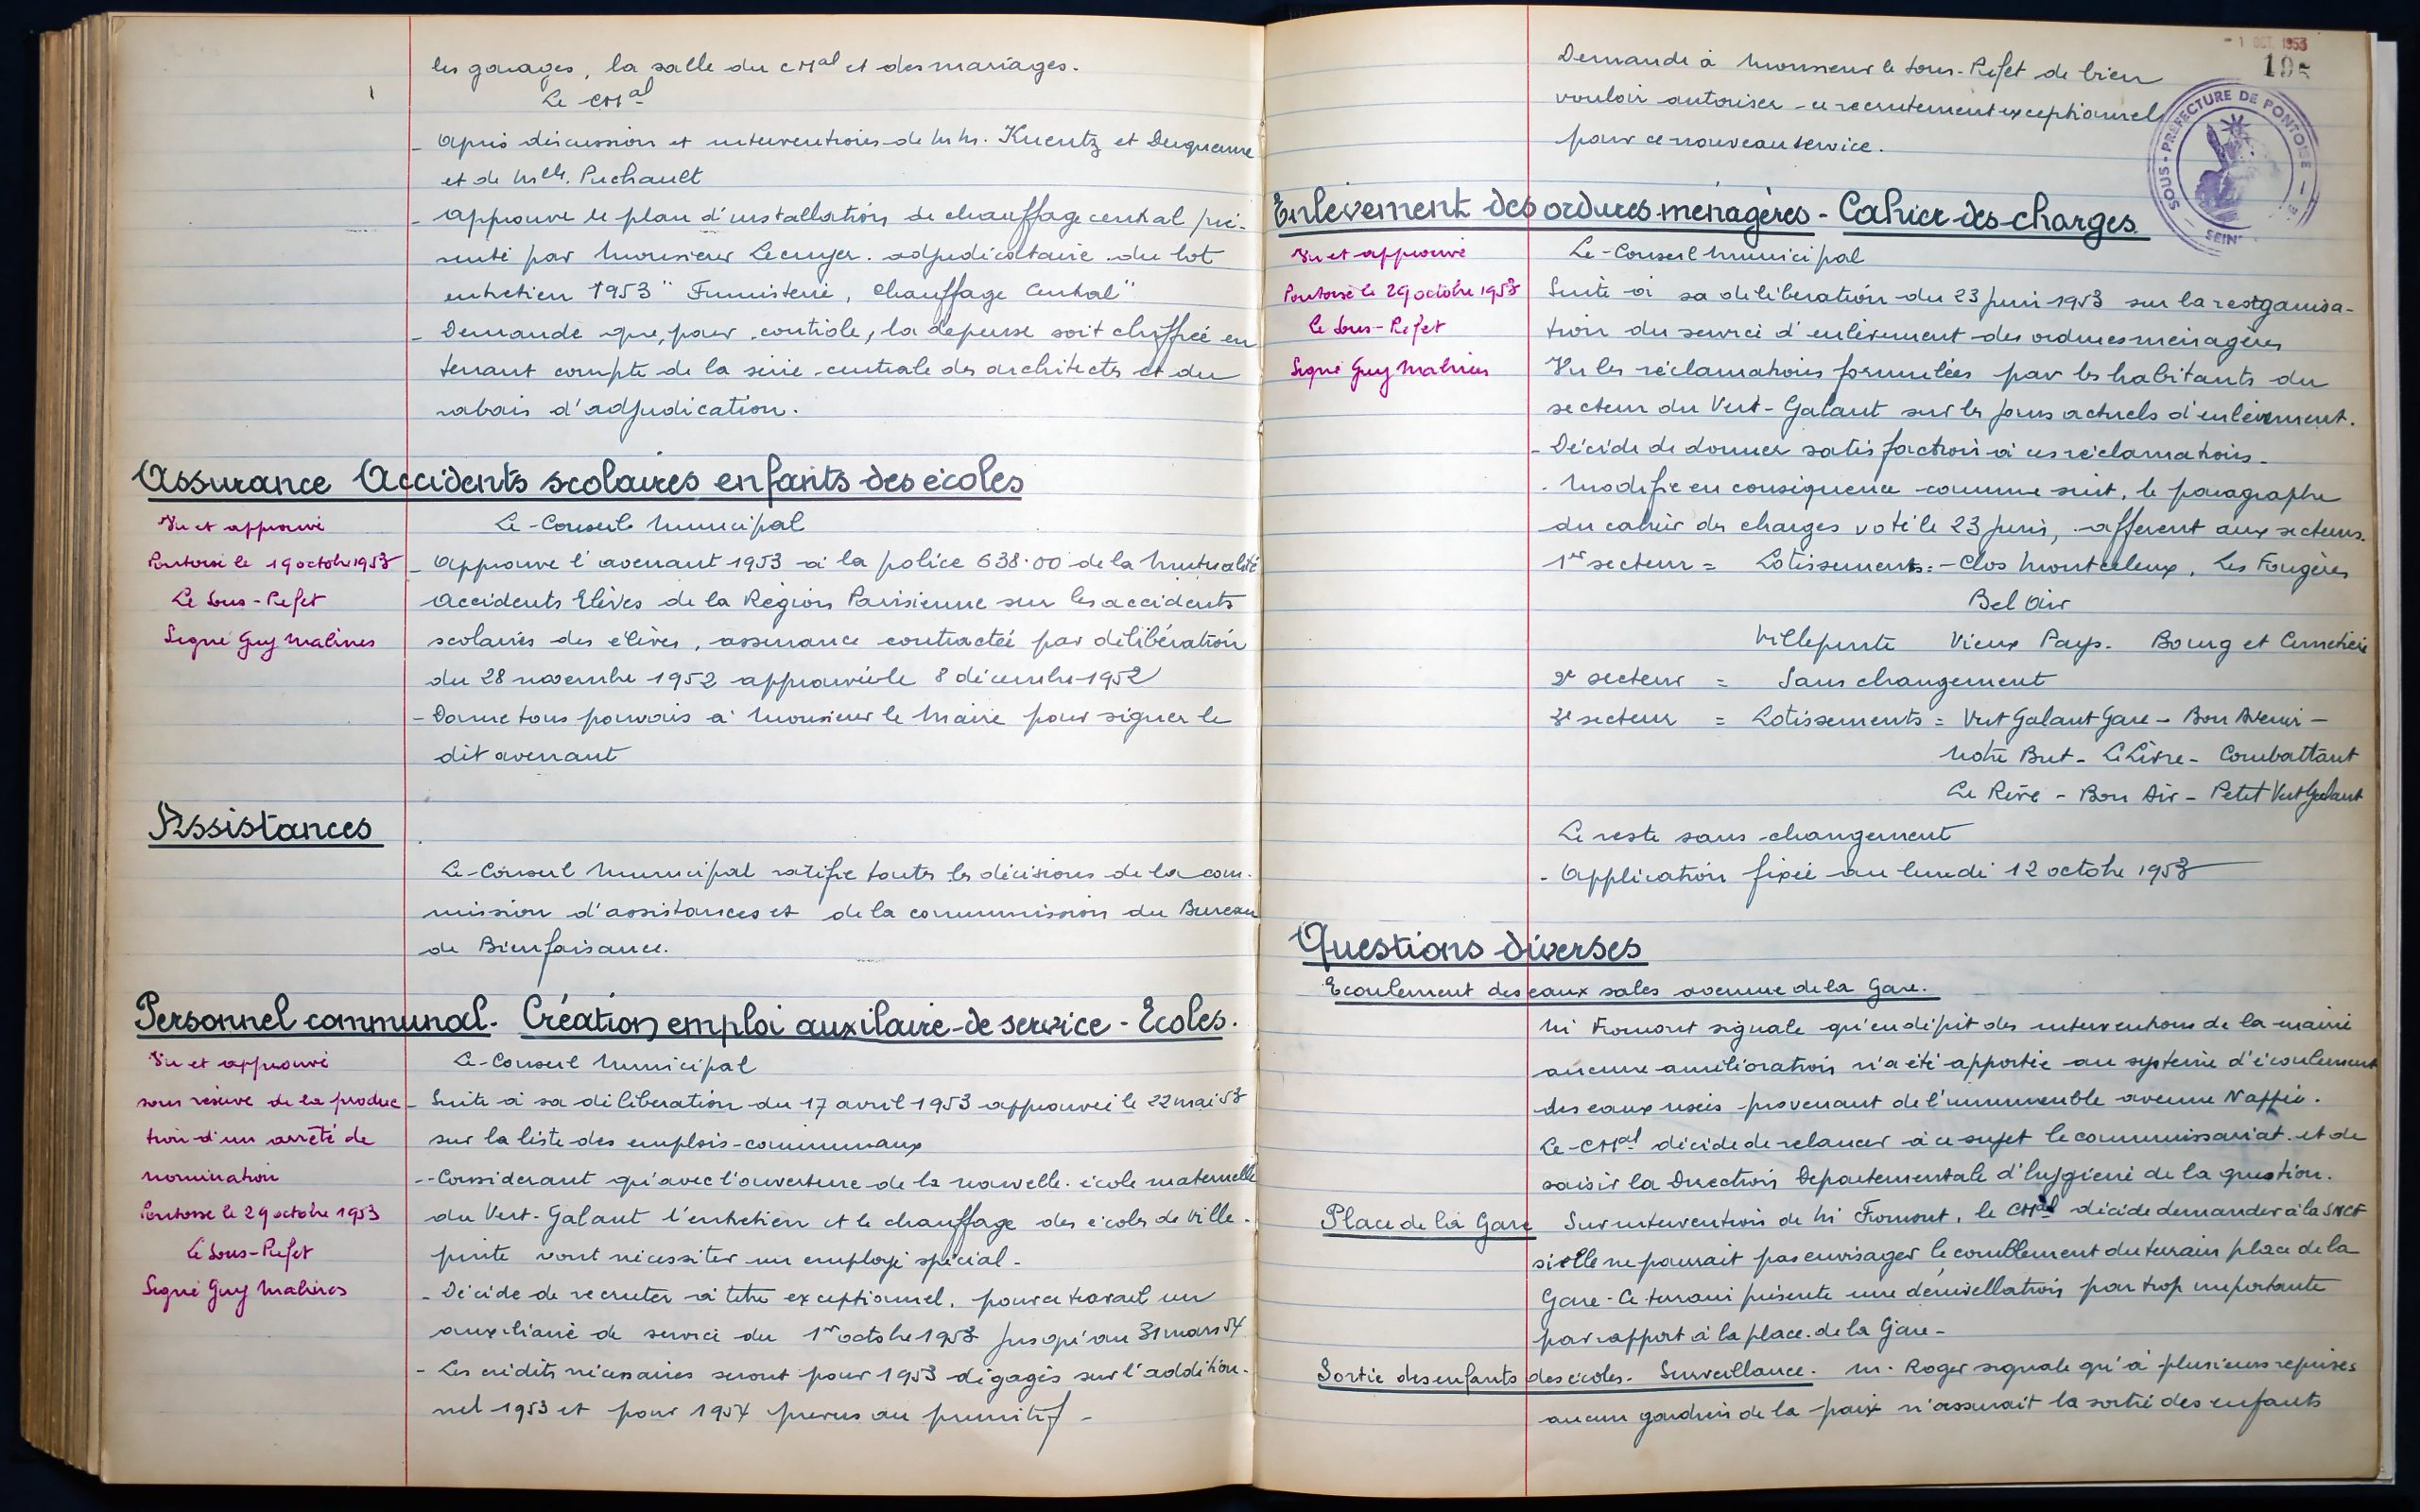 les garages, la salle du CMal et des mariages.
Le CMal
- Après discussion et interventions de M.M. Kuentz et Duquenne
et de Mlle. Puchault
- Approuve le plan d'installation de chauffage central pré-
senté par Monsieur Lecuyer. adjudicataire du lot
entretien 1953 "Fumisterie, chauffage central"
- Demande que, pour contrôle, la dépense soit chiffrée en
tenant compte de la série centrale des architectes et du
rabais d'adjudication.
Assurance Accidents scolaires enfants des écoles
Vu et approuvé
Pontoise le 19 octobre 1953
Le Sous-Préfet
Signé Guy Malines
Le Conseil Municipal
- Approuve l'avenant 1953 à la police 638.00 de la Mutualité
Accidents Elèves de la Région Parisienne sur les accidents
scolaires des élèves, assurance contractée par délibération
du 28 novembre 1952 approuvée le 8 décembre 1952
- Donne tous pouvoirs à Monsieur le Maire pour signer le
dit avenant
Assistances
Le Conseil Municipal ratifie toutes les décisions de la com-
mission d'assistances et de la commission du Bureau
de Bienfaisance.
Personnel communal - Création emploi auxilaire de service - Ecoles.
Vu et approuvé
sous réserve de la produc
tion d'un arrêté de
nomination
Pontoise le 29 octobre 1953
Le Sous-Préfet
Signé Guy Malines
Le Conseil Municipal
- Suite à sa délibération du 17 avril 1953 approuvée le 22 mai 53
sur la liste des emplois communaux
- Considerant qu'avec l'ouverture de la nouvelle école maternelle
du Vert-Galant l'entretien et le chauffage des écoles de Ville-
pinte vont nécessiter un employé spécial.
- Décide de recruter à titre exceptionnel, pour ce travail un
auxiliaire de service du 1er octobre 1953 jusqu'au 31 mars 54
- Les crédits nécessaires seront pour 1953 dégagés sur l'addition-
nel 1953 et pour 1954 prévus au primitif -
- 1 OCT. 1953
SOUS-PRÉFECTURE DE PONTOISE
Demande à Monsieur le Sous-Préfet de bien
vouloir autoriser ce recrutement exceptionnel
pour ce nouveau service.
Enlèvement des ordures ménagères - Cahier des charges
Vu et approuvé
Pontoise le 29 octobre 1953
Le Sous-Préfet
Signé Guy Malines
Le Conseil Municipal
Suite à sa délibération du 23 juin 1953 sur la réorganisa-
tion du service d'enlèvement des ordures ménagères
Vu les réclamations formulées par les habitants du
secteur du Vert-Galant sur les jours actuels d'enlèvement.
- Décide de donner satisfaction à ces réclamations.
- Modifie en conséquence comme suit, le paragraphe
du cahier des charges voté le 23 juin, afférent aux secteurs.
1er secteur = Lotissements: - Clos Montceleux, Les Fougères
Bel Air
Villepinte Vieux Pays. Bourg et Cimetière
2e secteur = Sans changement
3e secteur = Lotissements = Vert Galant Gare - Bon Avenir -
Notre But - Combattant
Le Rêve - Bon Air - Petit Vert Galant
Le reste sans changement
- Application fixée au lundi 12 octobre 1953
Questions diverses
Ecoulement des eaux sales avenue de la Gare.
Mr Fromont signale qu'en dépit des interventions de la mairie
aucune amélioration n'a été apportée au système d'écoulement
des eaux usées provenant de l'immeuble avenue
Le CMal décide de relancer à ce sujet le commissariat et de
saisir la Direction Départementale d'hygiène de la question.
Place de la Gare Sur intervention de Mr Fromont, le CMal décide demander à la SNCF
si elle ne pourrait pas envisager le comblement du terrain place de la
Gare - Ce terrain présente une dénivellation par trop importante
par rapport à la place de la Gare -
Sortie des enfants des écoles. Surveillance. M. Roger signale qu'à plusieurs reprises
aucun gardien de la paix n'assurait la sortie des enfants